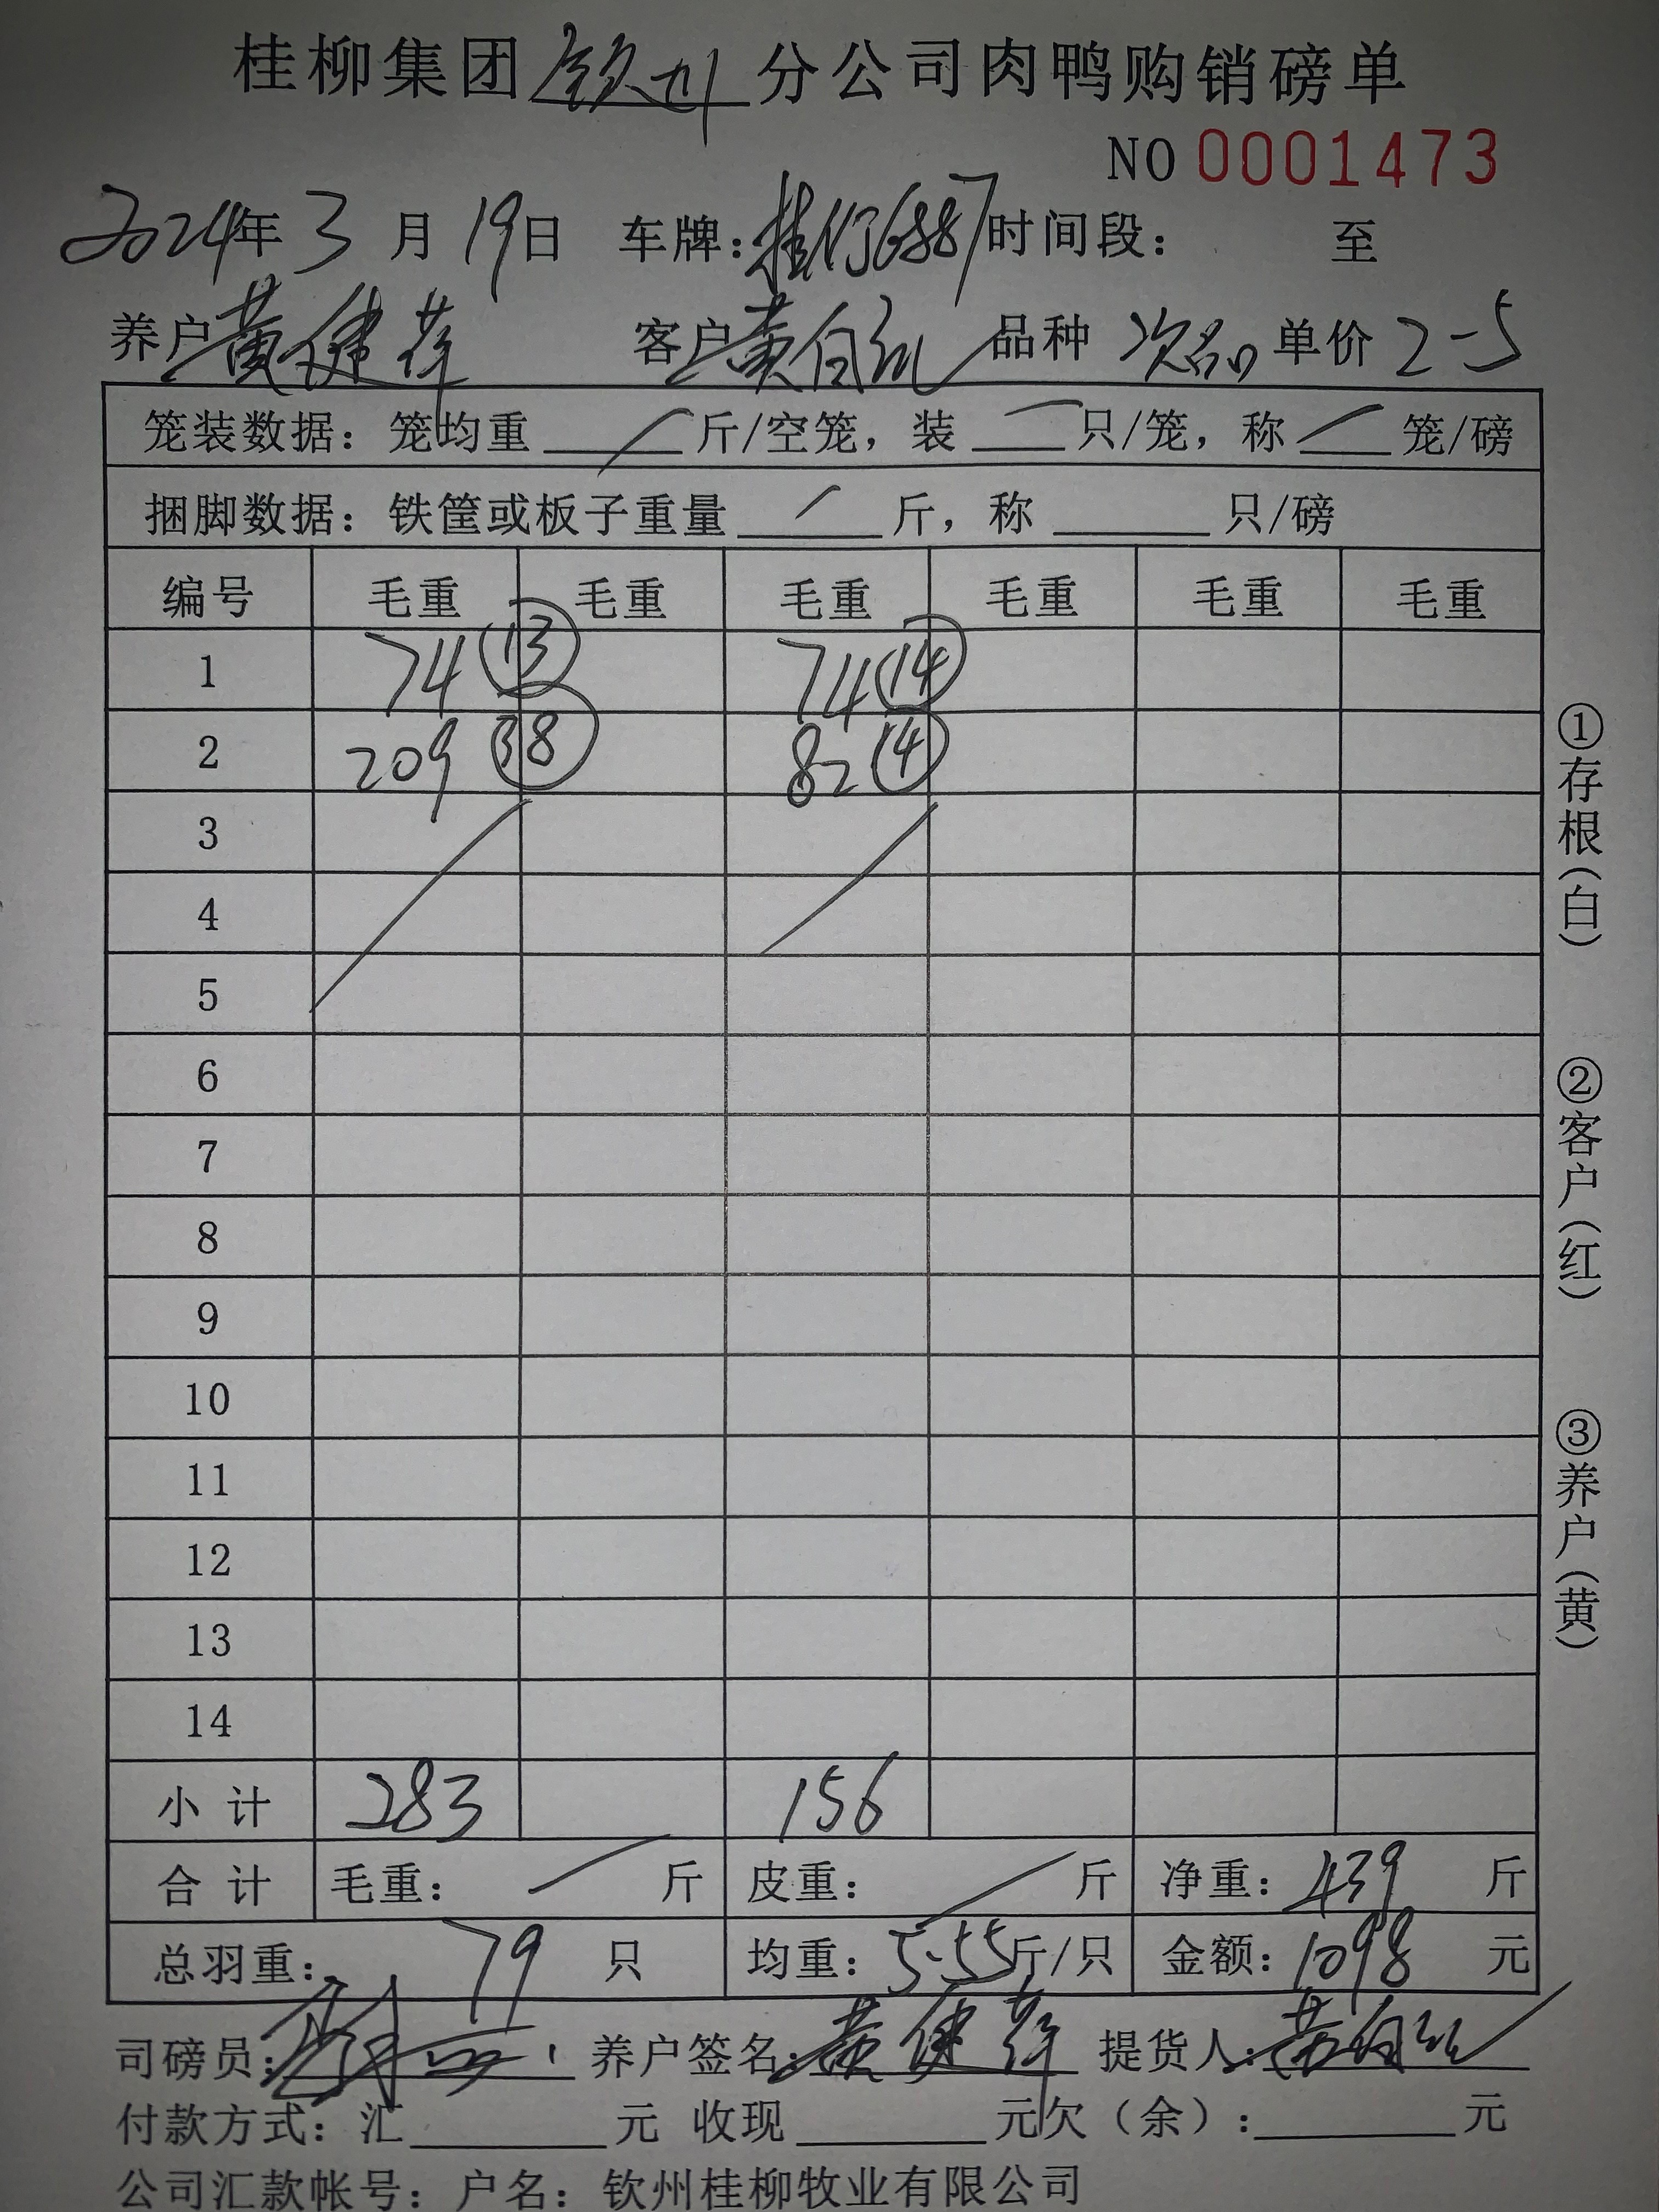 桂柳集团 钦州 分公司肉鸭购销磅单
NO 0001473
2024年 3 月 19日 车牌: 时间段: 至
养户 黄健萍 客户 黄白 品种 次品 单价 2-5
笼装数据: 笼均重 斤/空笼, 装 只/笼, 称 笼/磅
捆脚数据: 铁筐或板子重量 斤, 称 只/磅
编号 毛重 毛重 毛重 毛重 毛重 毛重
1 74 13 74 14
2 209 38 82 14
3
4
5
6
7
8
9
10
11
12
13
14
小 计 283 156
合 计 毛重: 斤 皮重: 斤 净重: 439 斤
总羽重: 79 只 均重: 5.55 斤/只 金额: 1098 元
司磅员: 养户签名: 黄健萍 提货人:
付款方式: 汇 元 收现 元 欠(余): 元
公司汇款帐号: 户名: 钦州桂柳牧业有限公司
①存根(白)
②客户(红)
③养户(黄)